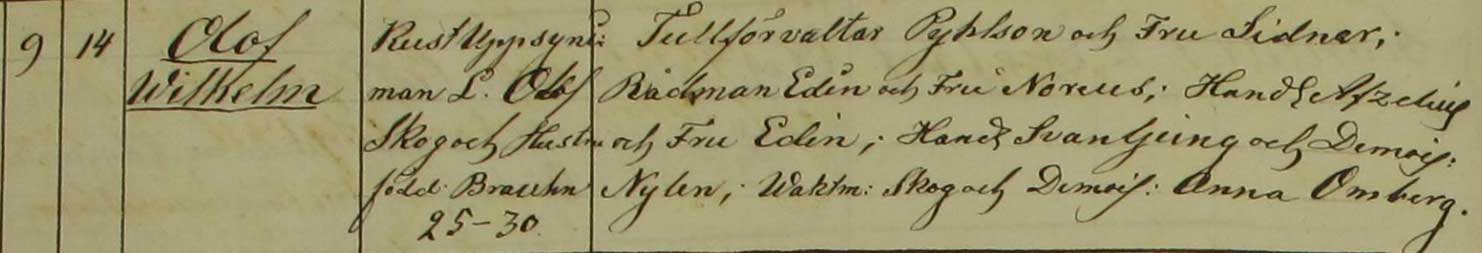 9 14 Olof Kust Uppsyni: Tullförvaltar Pyhlson och Fru Sidner;
Wilhelm man L. Olof Rådman Edin och Fru Noreus; Handl Afzelius
Skog och Hustru och Fru Edin; Handl Svanljung och Demois:
född Brauhn Nylen; Waktm: Skog och Demois: Anna Omberg.
25-30.